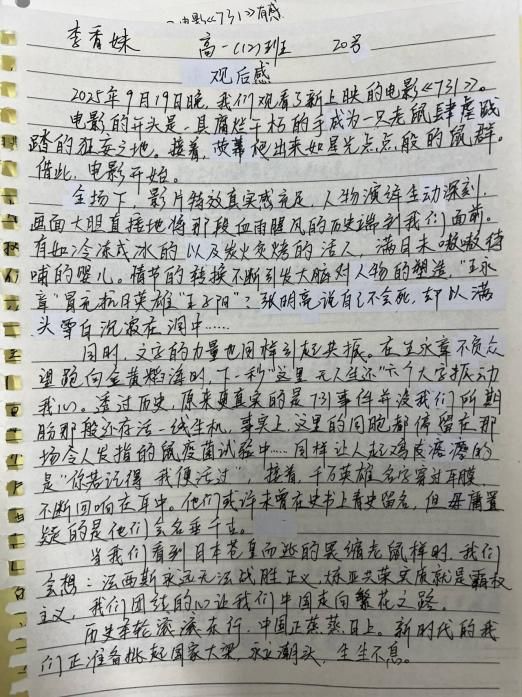 电影《731》有感
李香妹 高一(12)班 20号
观后感
2025年9月19日晚，我们观看了新上映的电影《731》。
电影的开头是一具腐烂干枯的手成为一只老鼠肆虐践
踏的狂妄之地。接着，荧幕爬出来如星光点点般的鼠群。
借此，电影开始。
全场下，影片特效真实感充足，人物演绎生动深刻，
画面大胆直接地将那段血雨腥风的历史端到我们面前。
有如冷冻成冰的以及炭火灸烤的活人，满目未嗷嗷待
哺的婴儿。情节的转换不断引发大脑对人物的塑造，"王永
章"冒充抗日英雄"王子阳"？张明亮说自己不会死，却以满
头雪白沉寂在洞中……
同时，文字的力量也同样引起共振。在王永章不负众
望跑向金黄燃海时，下一秒"这里无人生还"六个大字振动
我心。透过历史，原来更真实的是731事件并没我们所期
盼那般还存活一线生机，事实上，这里的同胞都停留在那
场令人发指的鼠疫菌试验中……同样让人起鸡皮疙瘩的
是"你若记得，我便活过"，接着，千万英雄名字穿过耳膜，
不断回响在耳中。他们或许未曾在史书上青史留名，但毋庸置
疑的是他们会名垂千古。
当我们看到日本苍皇而逃的畏缩老鼠样时，我们
会想：法西斯永远无法战胜正义，东亚共荣实质就是霸权
主义，我们团结的心让我们中国走向繁花之路。
历史车轮滚滚东行，中国正蒸蒸日上。新时代的我
们正准备挑起国家大梁，永立潮头，生生不息。